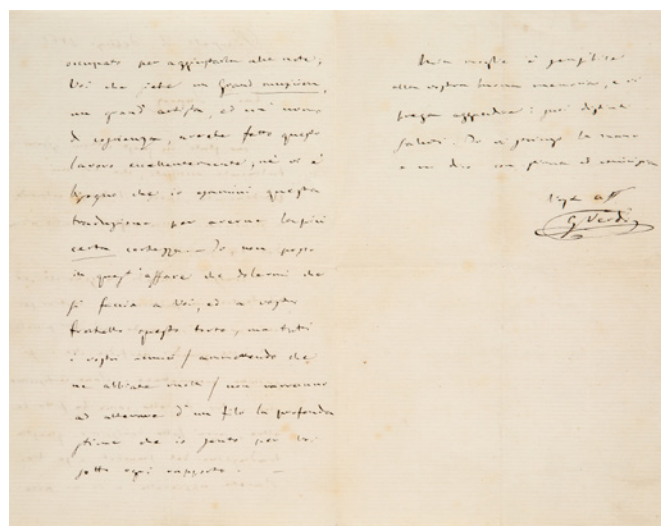 occupato per aggiustarla alle note;
Voi che siete un Grand musicien,
un grand' artista, ed un' uomo
di coscienza, avrete fatto questo
lavoro eccellentemente, nè vi è
bisogno che io esamini questa
traduzione per averne la più
certa certezza. Io non posso
in quest'affare che dolermi che
si faccia a Voi, ed a vostro
fratello questo torto, ma tutti
i vostri amici / ammettendo che
ne abbiate molti / non varranno
ad alterare d'un filo la profonda
stima che io sento per Voi
sotto ogni rapporto. —
Mia moglie è sensibile
alla vostra buona memoria, e vi
prega aggradire i suoi distinti
saluti. Io vi stringo la mano
e mi dico con stima ed amicizia
Vost aff
G Verdi